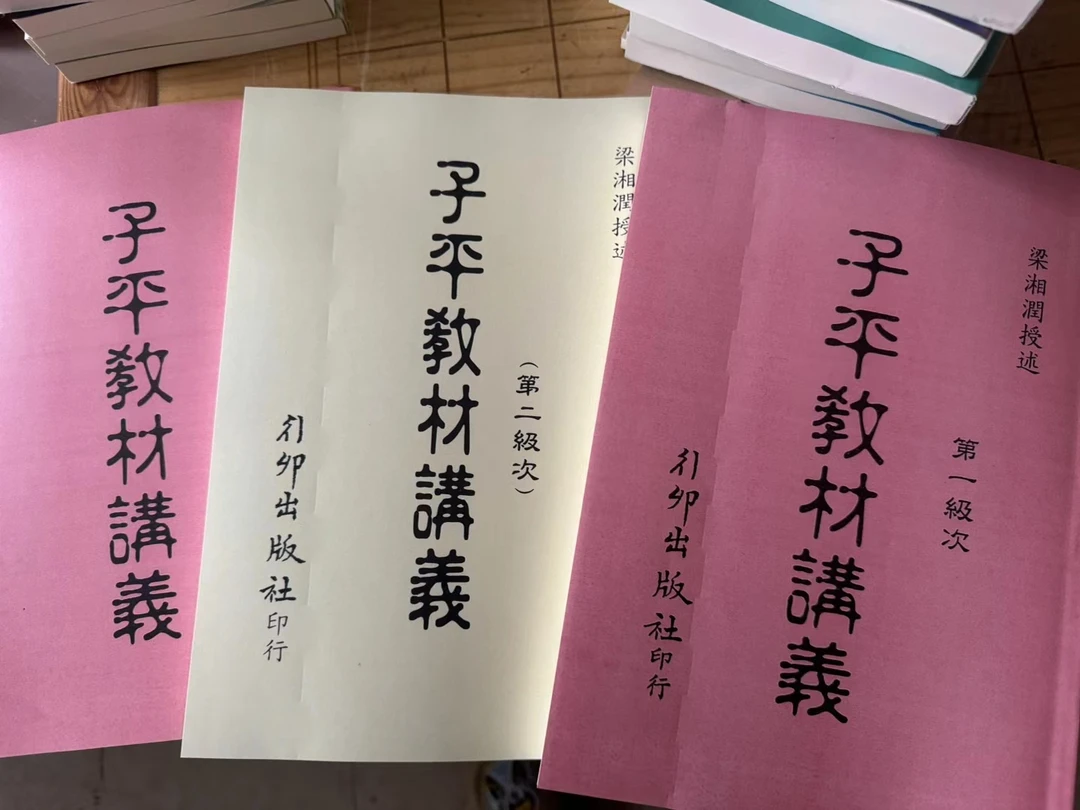 梁湘潤授述
第一級次
子平教材講義
行卯出版社印行
梁湘潤授述
(第二級次)
子平教材講義
行卯出版社印行
子平教材講義